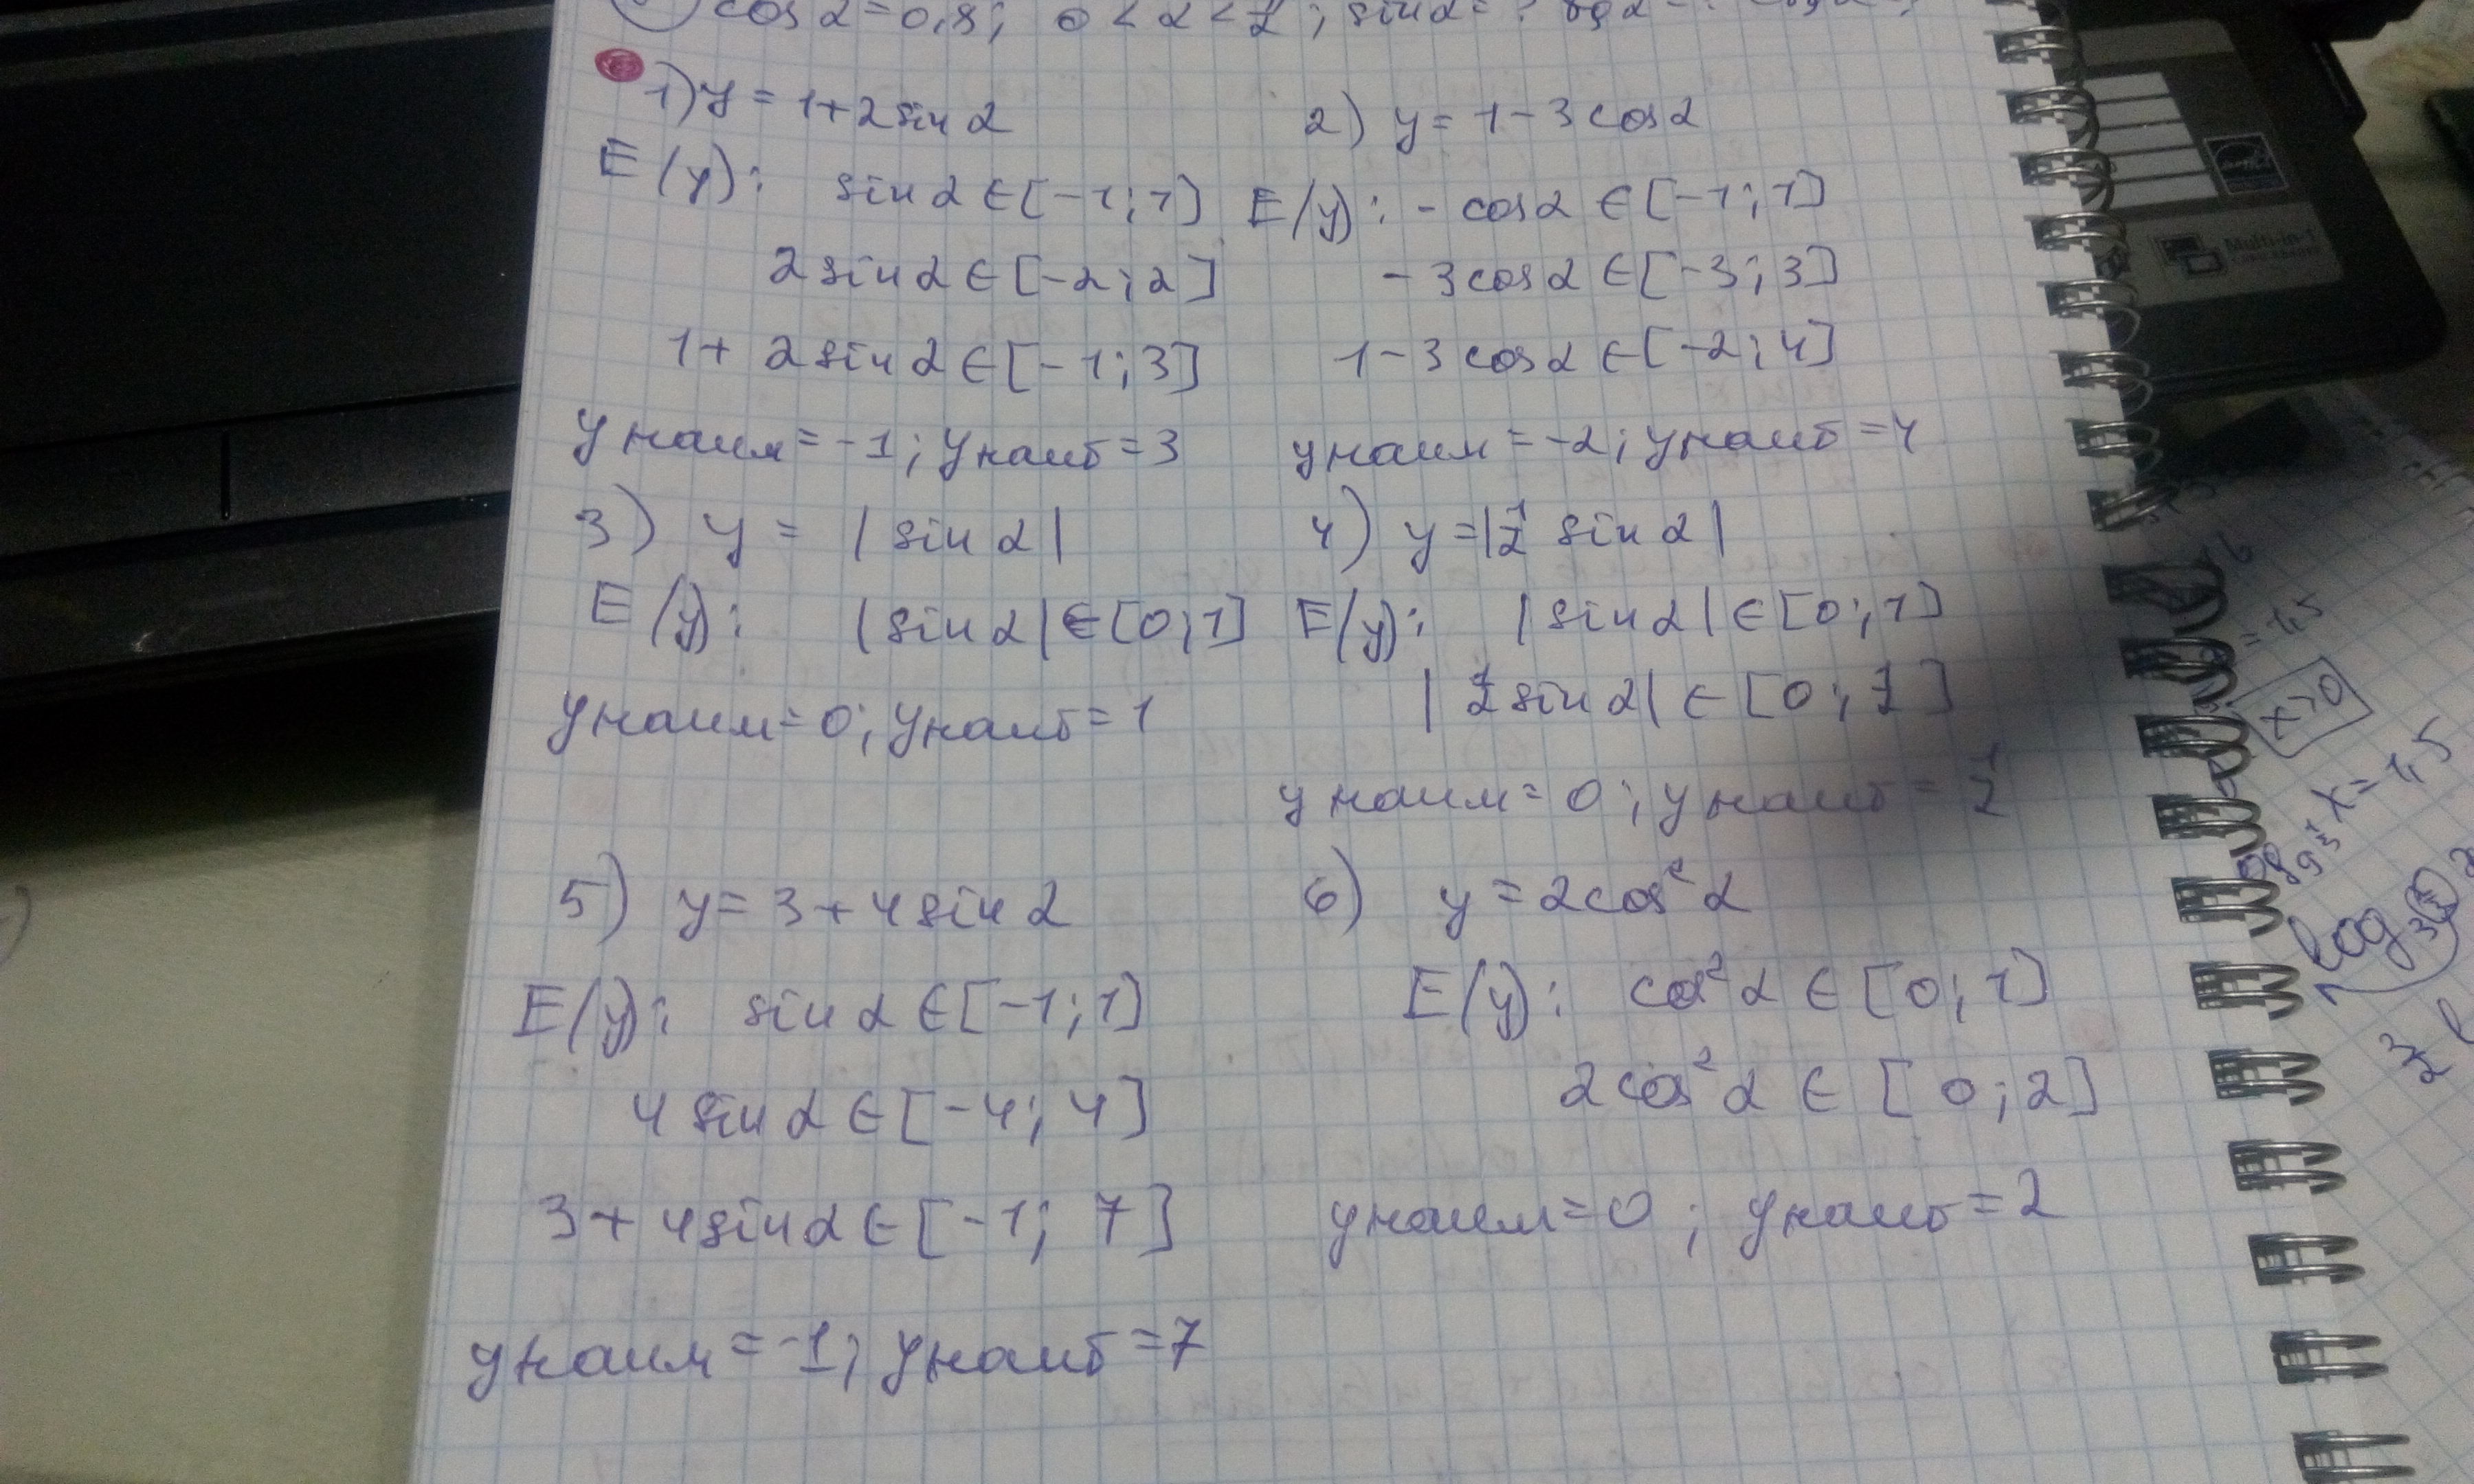 cos α = 0,8; 0 < α < π/2; sin α = ?
1) y = 1+2 sin α
E(y): sin α ∈ [-1; 1]
2 sin α ∈ [-2; 2]
1+ 2 sin α ∈ [-1; 3]
y наим = -1; y наиб = 3
2) y = 1-3 cos α
E(y): - cos α ∈ [-1; 1]
-3 cos α ∈ [-3; 3]
1-3 cos α ∈ [-2; 4]
y наим = -2; y наиб = 4
3) y = |sin α|
E(y): |sin α| ∈ [0; 1]
y наим = 0; y наиб = 1
4) y = |1/2 sin α|
E(y): |sin α| ∈ [0; 1]
|1/2 sin α| ∈ [0; 1/2]
y наим = 0; y наиб = 1/2
5) y = 3+4 sin α
E(y): sin α ∈ [-1; 1]
4 sin α ∈ [-4; 4]
3+ 4 sin α ∈ [-1; 7]
y наим = -1; y наиб = 7
6) y = 2cos² α
E(y): cos² α ∈ [0; 1]
2cos² α ∈ [0; 2]
y наим = 0; y наиб = 2
= 1,5
x>0
x = 1,5
log
3/2
Multi-in-1